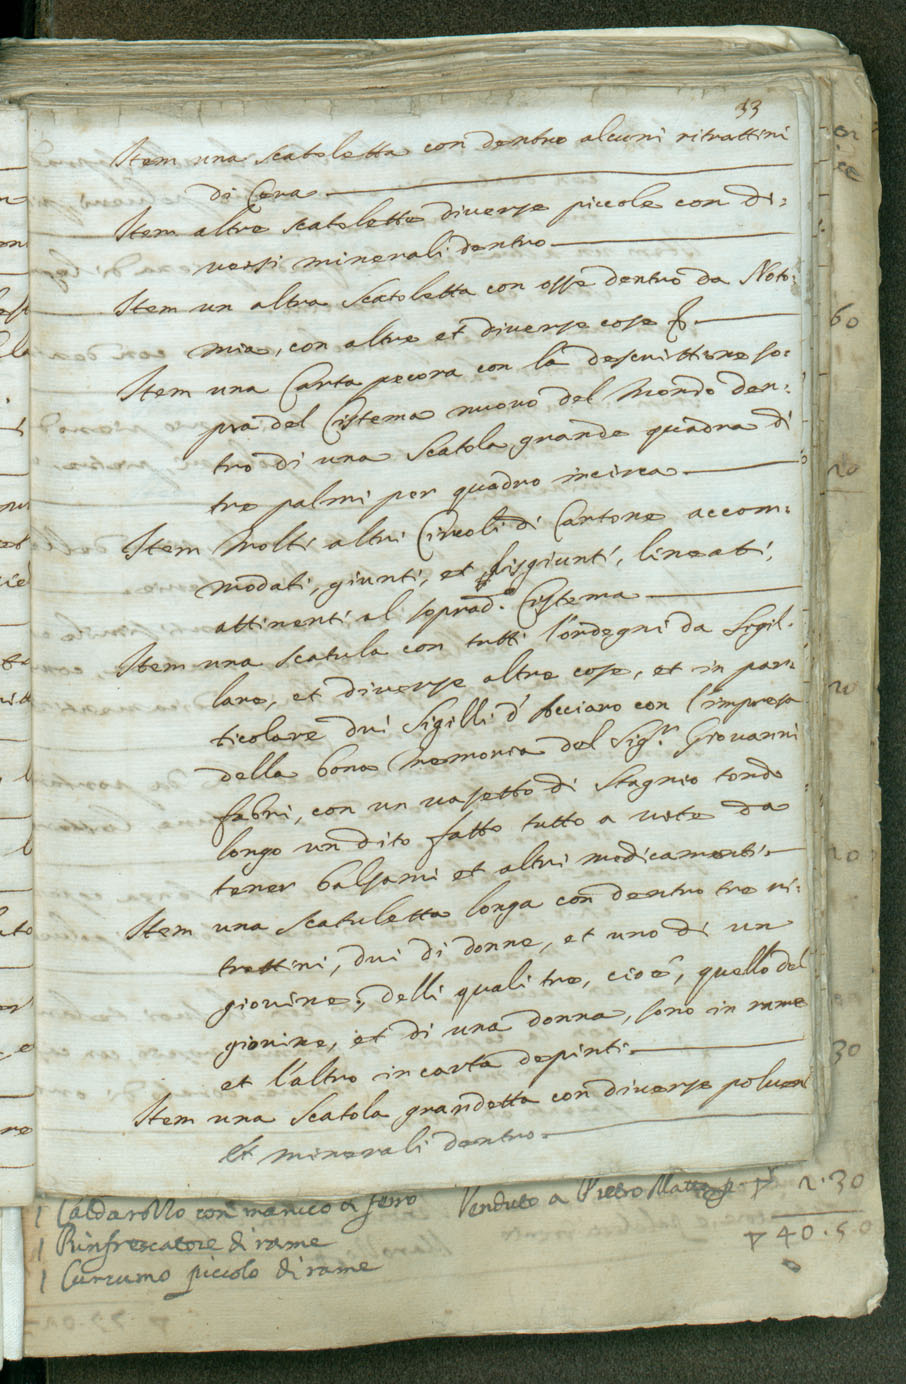 33
Item una scatoletta con dentro alcuni ritrattini
di Cera
Item altre scatolette diverse piccole con di:
versi minerali dentro
Item un altra scatoletta con osse dentro da Noto:
mia, con altre et diverse cose
Item una Carta pecora con la descrittione so:
pra del Cistema nuovo del Mondo den:
tro di una scatola grande quadra di
tre palmi per quadro incirca
Item molti altri Circoli di Cartone accom:
modati, giunti, et disgiunti, lineati,
attinenti al soprad.o Cistema
Item una scatula con tutti l'ordegni da sigil:
lare, et diverse altre cose, et in par:
ticolare dui sigilli d' acciaro con l'impresa
della bona memoria del Sig.r Giovanni
fabri, con un vasetto di stagnio tondo
longo un dito fatto tutto a vite da
tener balsami et altri medicamenti
Item una scatuletta longa con dentro tre ri:
trattini, dui di donne, et uno di un
giovine; delli quali tre, cioè, quello del
giovine, et di una donna, sono in rame
et l'altro in carta depinti
Item una scatola grandetta con diverse polveri
et minerali dentro
60
20
20
20
30
1 Caldarozzo con manico di ferro Venduto a Pietro 2.30
1 Rinfrescatore di rame 40.50
1 Cuccumo piccolo di rame